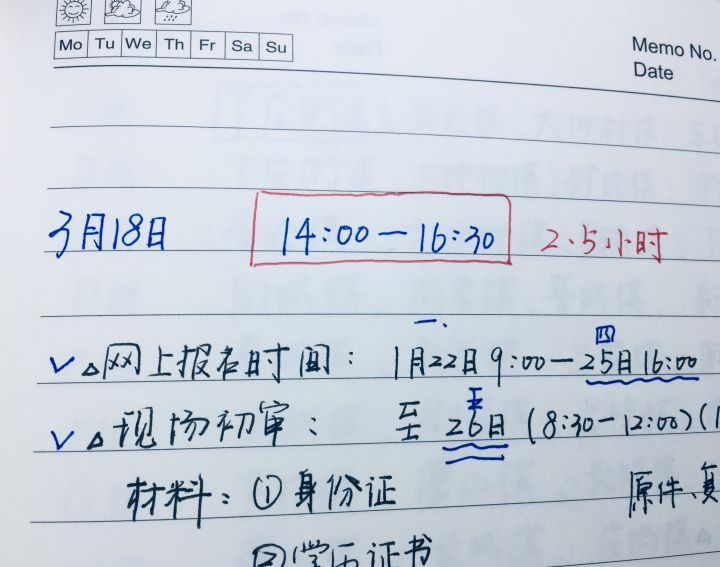 Mo Tu We Th Fr Sa Su
Memo No.
Date
3月18日 14:00—16:30 2.5小时
一. 四
✓△网上报名时间: 1月22日9:00—25日16:00
五
✓△现场初审: 至26日(8:30—12:00)(1
材料:①身份证 原件、复
②学历证书